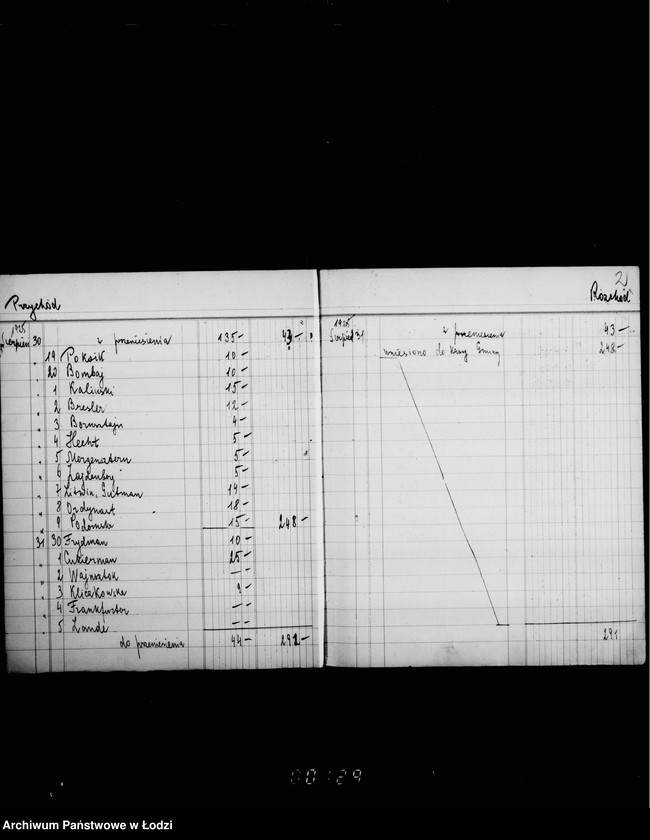 Przychód
1925
Sierpień 30 z przeniesienia 135- 43-
19 Pokoik 10-
20 Bombaj 10-
1 Kaliński 15-
2 Bresler 12-
3 Bornsztajn 4-
4 Hecht 5-
5 Morgensztern 5-
6 5-
7 Litwin, Gutman 14-
8 Ordynant 18-
9 15- 248-
31 30 Frydman 10-
1 Cukierman 25-
2 Wajnsztok --
3 9-
4 Frankfurter --
5 Landé --
do przeniesienia 44- 291-
2
Rozchód
1925
Sierpień 31 z przeniesienia 43-
wniesiono do Kasy Gminy 248-
291
00129
Archiwum Państwowe w Łodzi